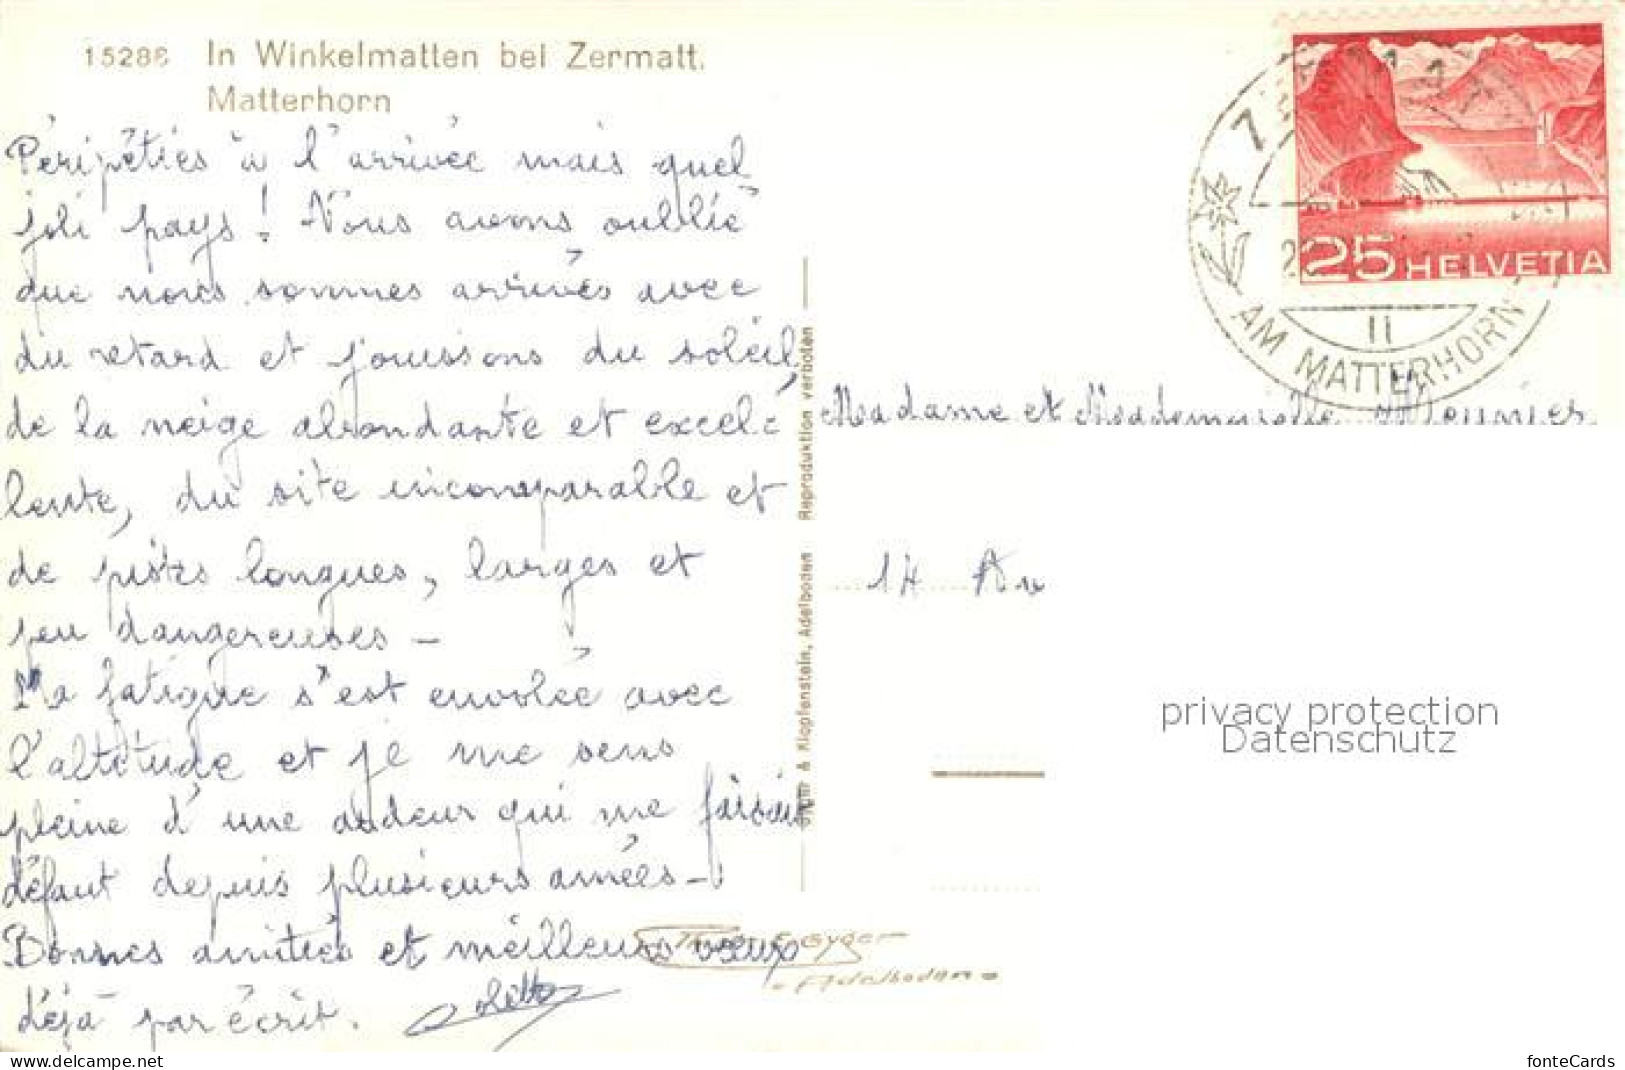 15288 In Winkelmatten bei Zermatt.
Matterhorn
Péripéties à l'arrivée mais quel
joli pays ! Nous avons oublié
que nous sommes arrivés avec
du retard et jouissons du soleil,
de la neige abondante et excel-
lente, du site incomparable et
de pistes longues, larges et
peu dangereuses -
Ma fatigue s'est envolée avec
l'altitude et je me sens
pleine d'une audeur qui me faisait
défaut depuis plusieurs années -
Bonnes amitiés et meilleurs voeux
déjà par écrit.
Klopfenstein, Adelboden Reproduktion verboten
Gyger
Adelboden
ZERMATT
AM MATTERHORN
II
25 HELVETIA
Madame et Mademoiselle
14 Av
privacy protection
Datenschutz
www.delcampe.net
fonteCards